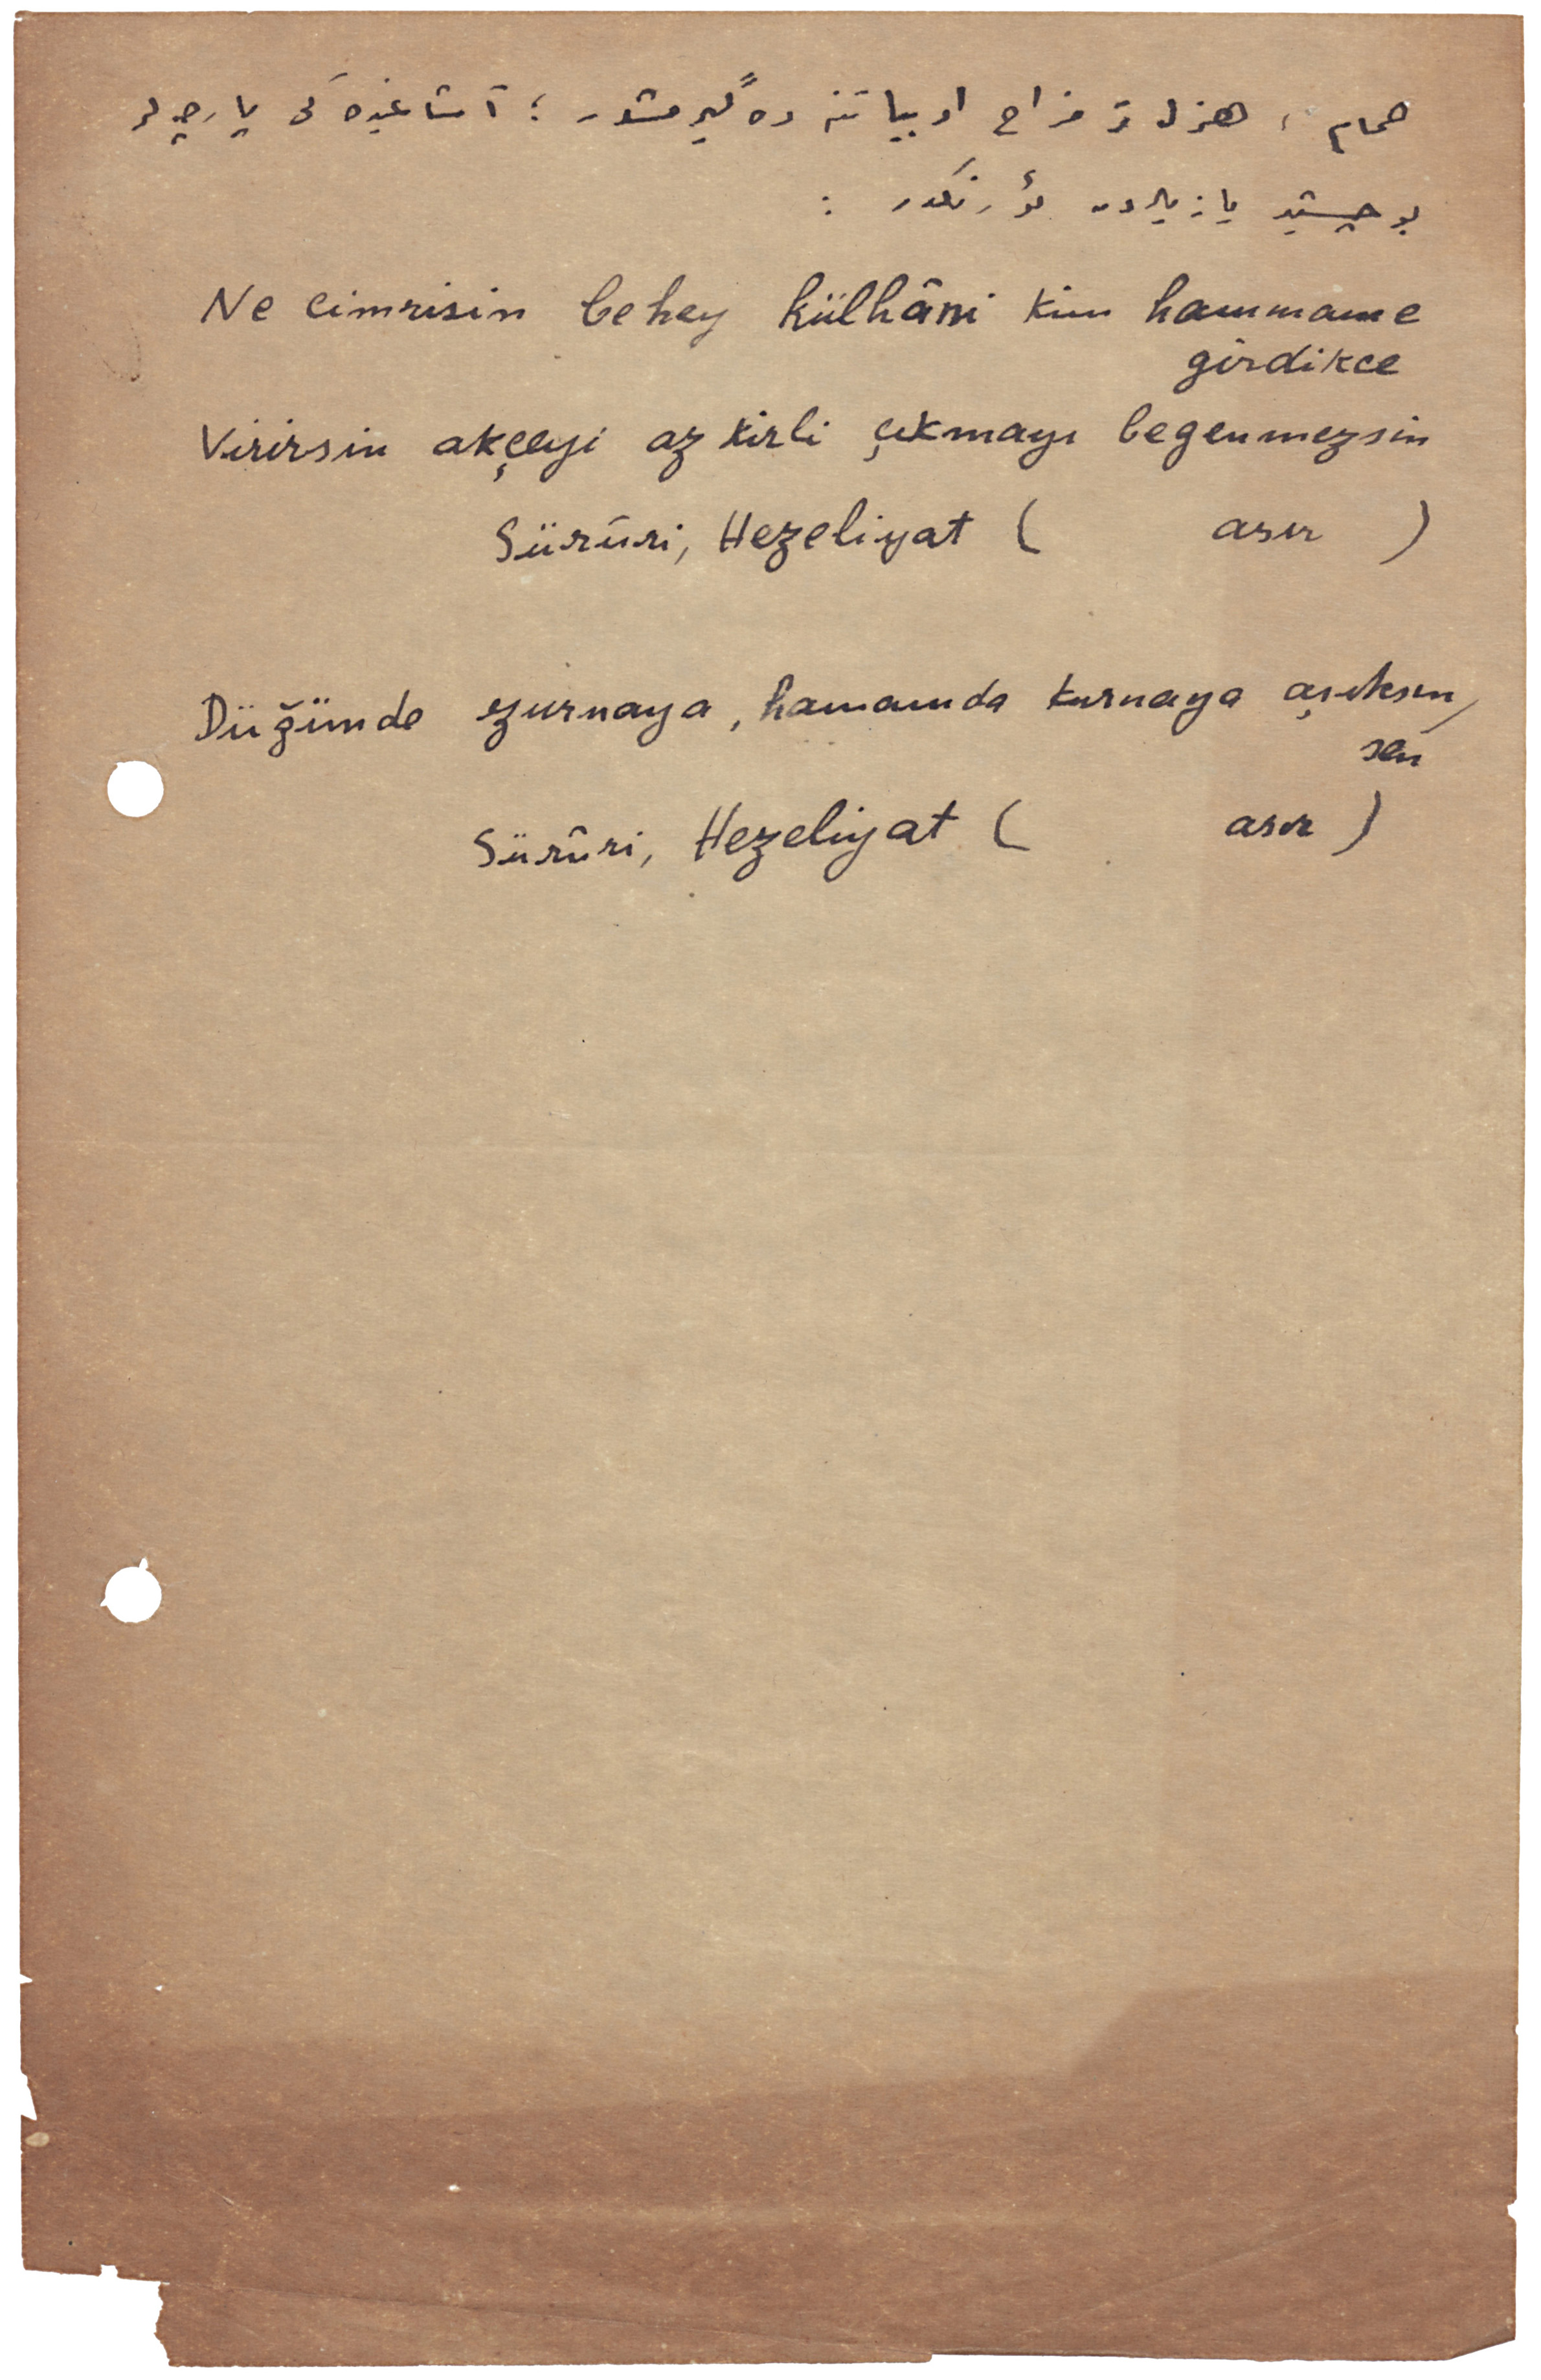 حمام ، هزل و مزاح ادبیاتنه ده گیرمشدر ؛ آشاغیده کی پارچه لر
بو چشید یازیلردن اؤرنکدر :
Ne cimrisin behey külhâni kim hammame
girdikce
Virirsin akçeyi az kirli çıkmayı begenmezsin
Sürûri, Hezeliyat ( asır )
Düğünde zurnaya, hamamda kurnaya aşıksın
sen
Sürûri, Hezeliyat ( asır )